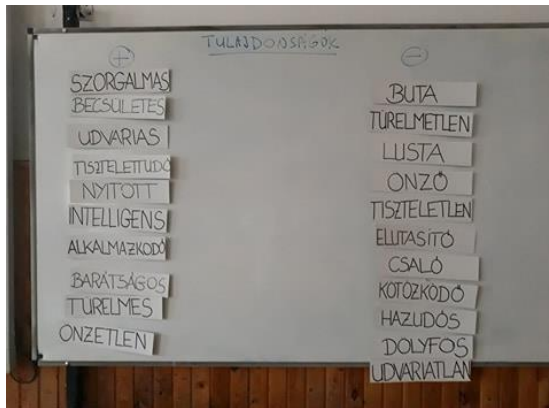 TULAJDONSÁGOK
+
SZORGALMAS
BECSÜLETES
UDVARIAS
TISZTELETTUDÓ
NYITOTT
INTELLIGENS
ALKALMAZKODÓ
BARÁTSÁGOS
TÜRELMES
ÖNZETLEN
-
BUTA
TÜRELMETLEN
LUSTA
ÖNZŐ
TISZTELETLEN
ELUTASÍTÓ
CSALÓ
KÖTÖZKÖDŐ
HAZUDÓS
DÖLYFÖS
UDVARIATLAN